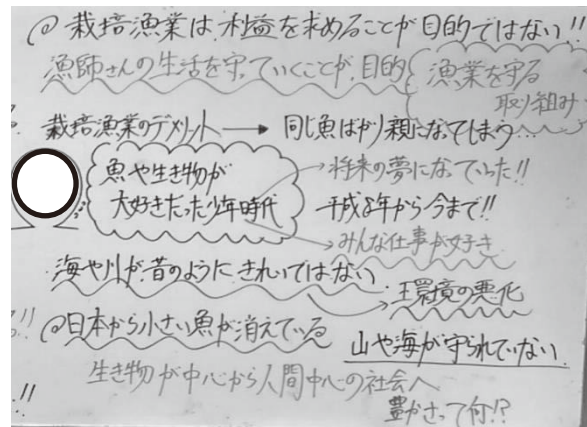 ◎栽培漁業は、利益を求めることが目的ではない!!
漁師さんの生活を守っていくことが、目的
漁業を守る
取り組み
栽培漁業のデメリット → 同じ魚ばかり親になってしまう…
魚や生き物が
大好きだった少年時代
将来の夢になっていった!!
平成8年から今まで!!
みんな仕事が好き
海や川が昔のようにきれいではない
環境の悪化
◎日本から小さい魚が消えている
山や海が守られていない
生き物が中心から人間中心の社会へ
豊かさって何!?